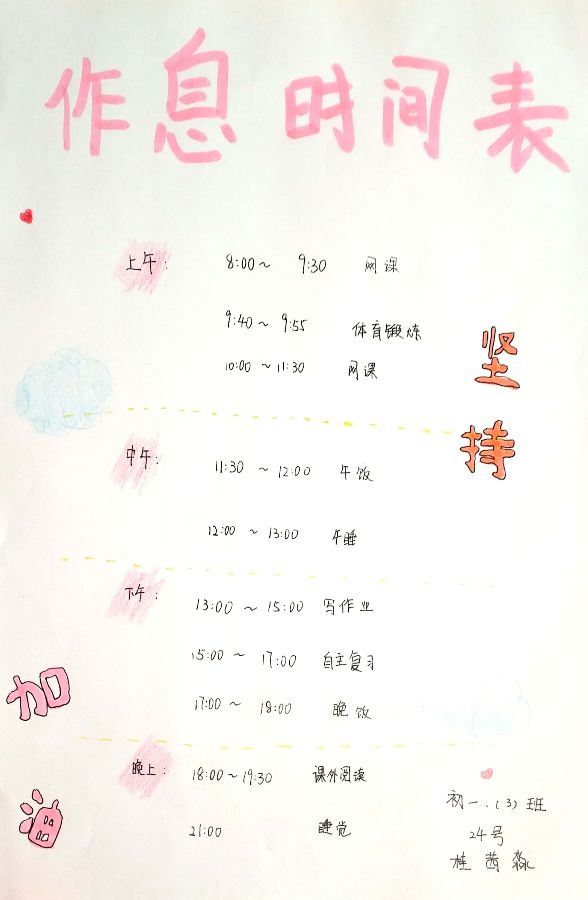 作息时间表
上午: 8:00～ 9:30 网课
9:40～ 9:55 体育锻炼
10:00～11:30 网课
坚持
中午: 11:30 ～12:00 午饭
12:00 ～13:00 午睡
下午: 13:00 ～15:00 写作业
15:00～ 17:00 自主复习
17:00～ 18:00 晚饭
加油
晚上: 18:00～19:30 课外阅读
21:00 睡觉
初一.(3)班
24号
桂茜淼